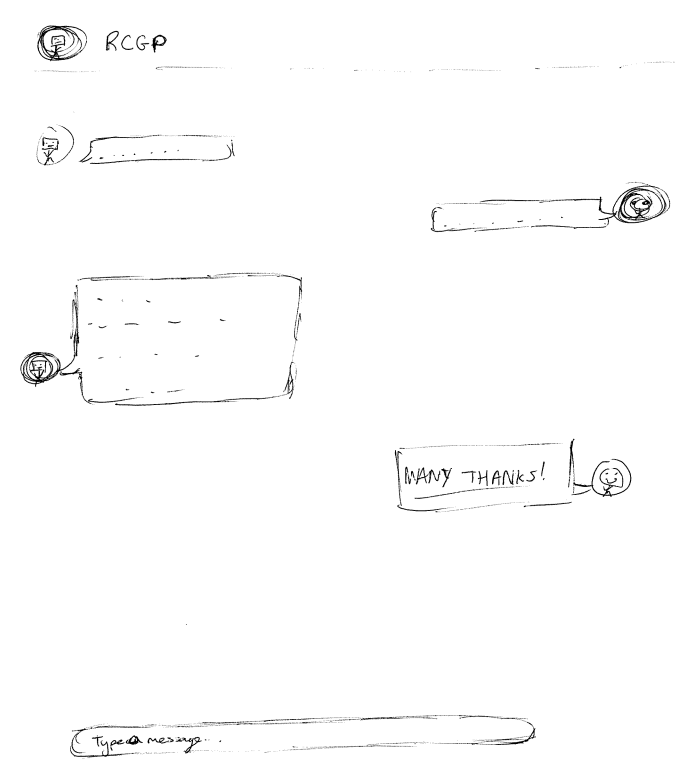 RCGP
MANY THANKS!
Type a message...